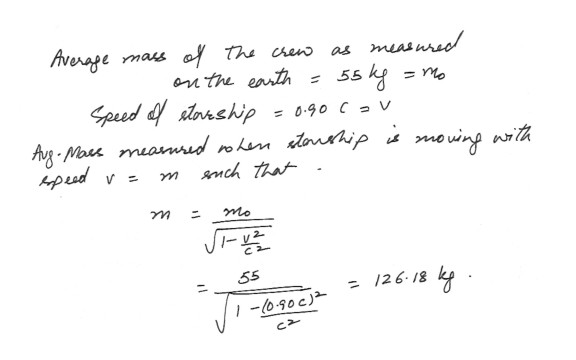 Average mass of the crew as measured
on the earth = 55 kg = m₀
Speed of starship = 0.90 C = V
Avg. Mass measured when starship is moving with
speed v = m such that -
m = m₀ / √(1 - v²/c²)
= 55 / √(1 - (0.90c)²/c²) = 126.18 kg.